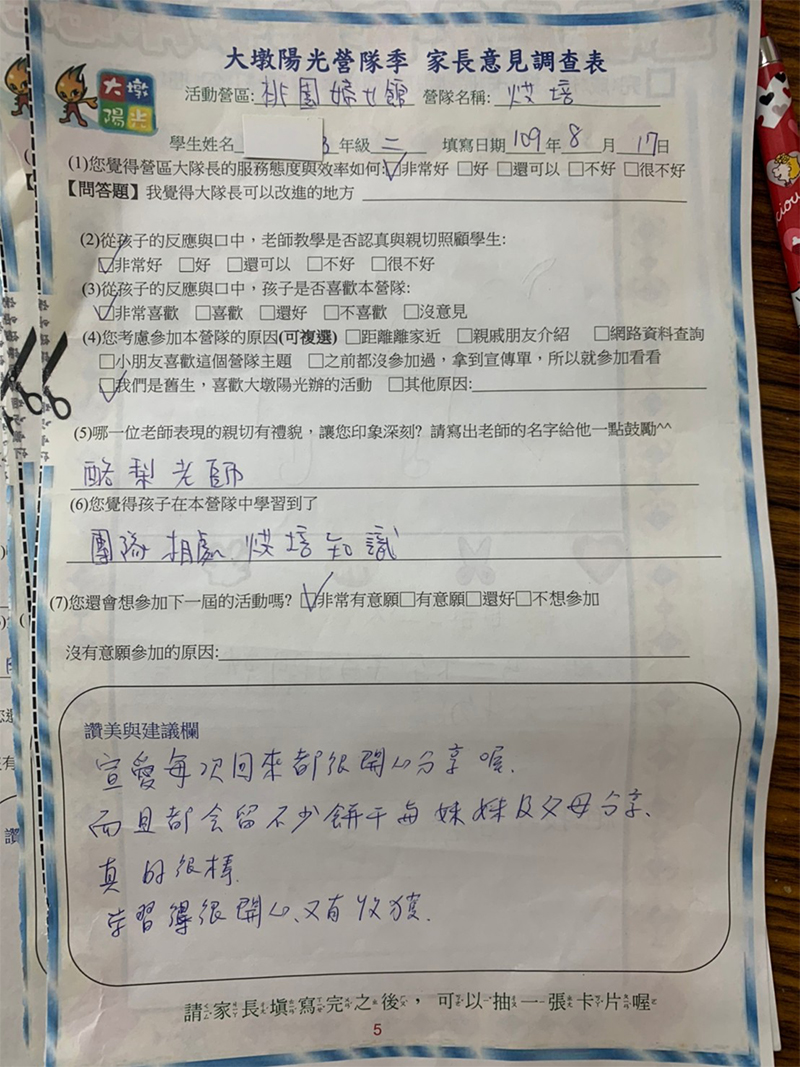 大墩陽光營隊季 家長意見調查表
大墩
陽光
活動營區:桃園婦女館 營隊名稱:烘培
學生姓名 年級二 填寫日期109年8月17日
(1)您覺得營區大隊長的服務態度與效率如何:☑非常好 □好 □還可以 □不好 □很不好
【問答題】我覺得大隊長可以改進的地方
(2)從孩子的反應與口中，老師教學是否認真與親切照顧學生:
☑非常好 □好 □還可以 □不好 □很不好
(3)從孩子的反應與口中，孩子是否喜歡本營隊:
☑非常喜歡 □喜歡 □還好 □不喜歡 □沒意見
(4)您考慮參加本營隊的原因(可複選) □距離離家近 □親戚朋友介紹 □網路資料查詢
□小朋友喜歡這個營隊主題 □之前都沒參加過，拿到宣傳單，所以就參加看看
☑我們是舊生，喜歡大墩陽光辦的活動 □其他原因:
(5)哪一位老師表現的親切有禮貌，讓您印象深刻? 請寫出老師的名字給他一點鼓勵^^
酪梨老師
(6)您覺得孩子在本營隊中學習到了
團隊相處 烘培知識
(7)您還會想參加下一屆的活動嗎? ☑非常有意願□有意願□還好□不想參加
沒有意願參加的原因:
讚美與建議欄
宣愛每次回來都很開心分享喔.
而且都会留不少餅干与妹妹及父母分享、
真的很棒.
学習得很開心、又有收獲.
請家長填寫完之後，可以抽一張卡片喔
5